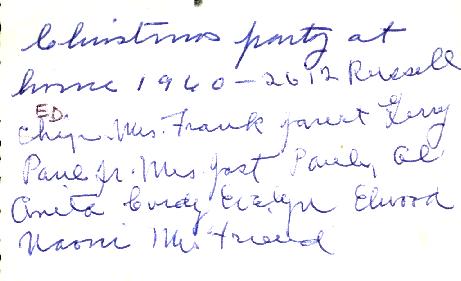 Christmas party at
home 1960-2612 Russell
ED.
Chip. Mrs. Frank Janet Gerry
Paul Jr. Mrs Jost Paul, Al
Anita Cindy Evelyn Elwood
Naomi Mrs Friend